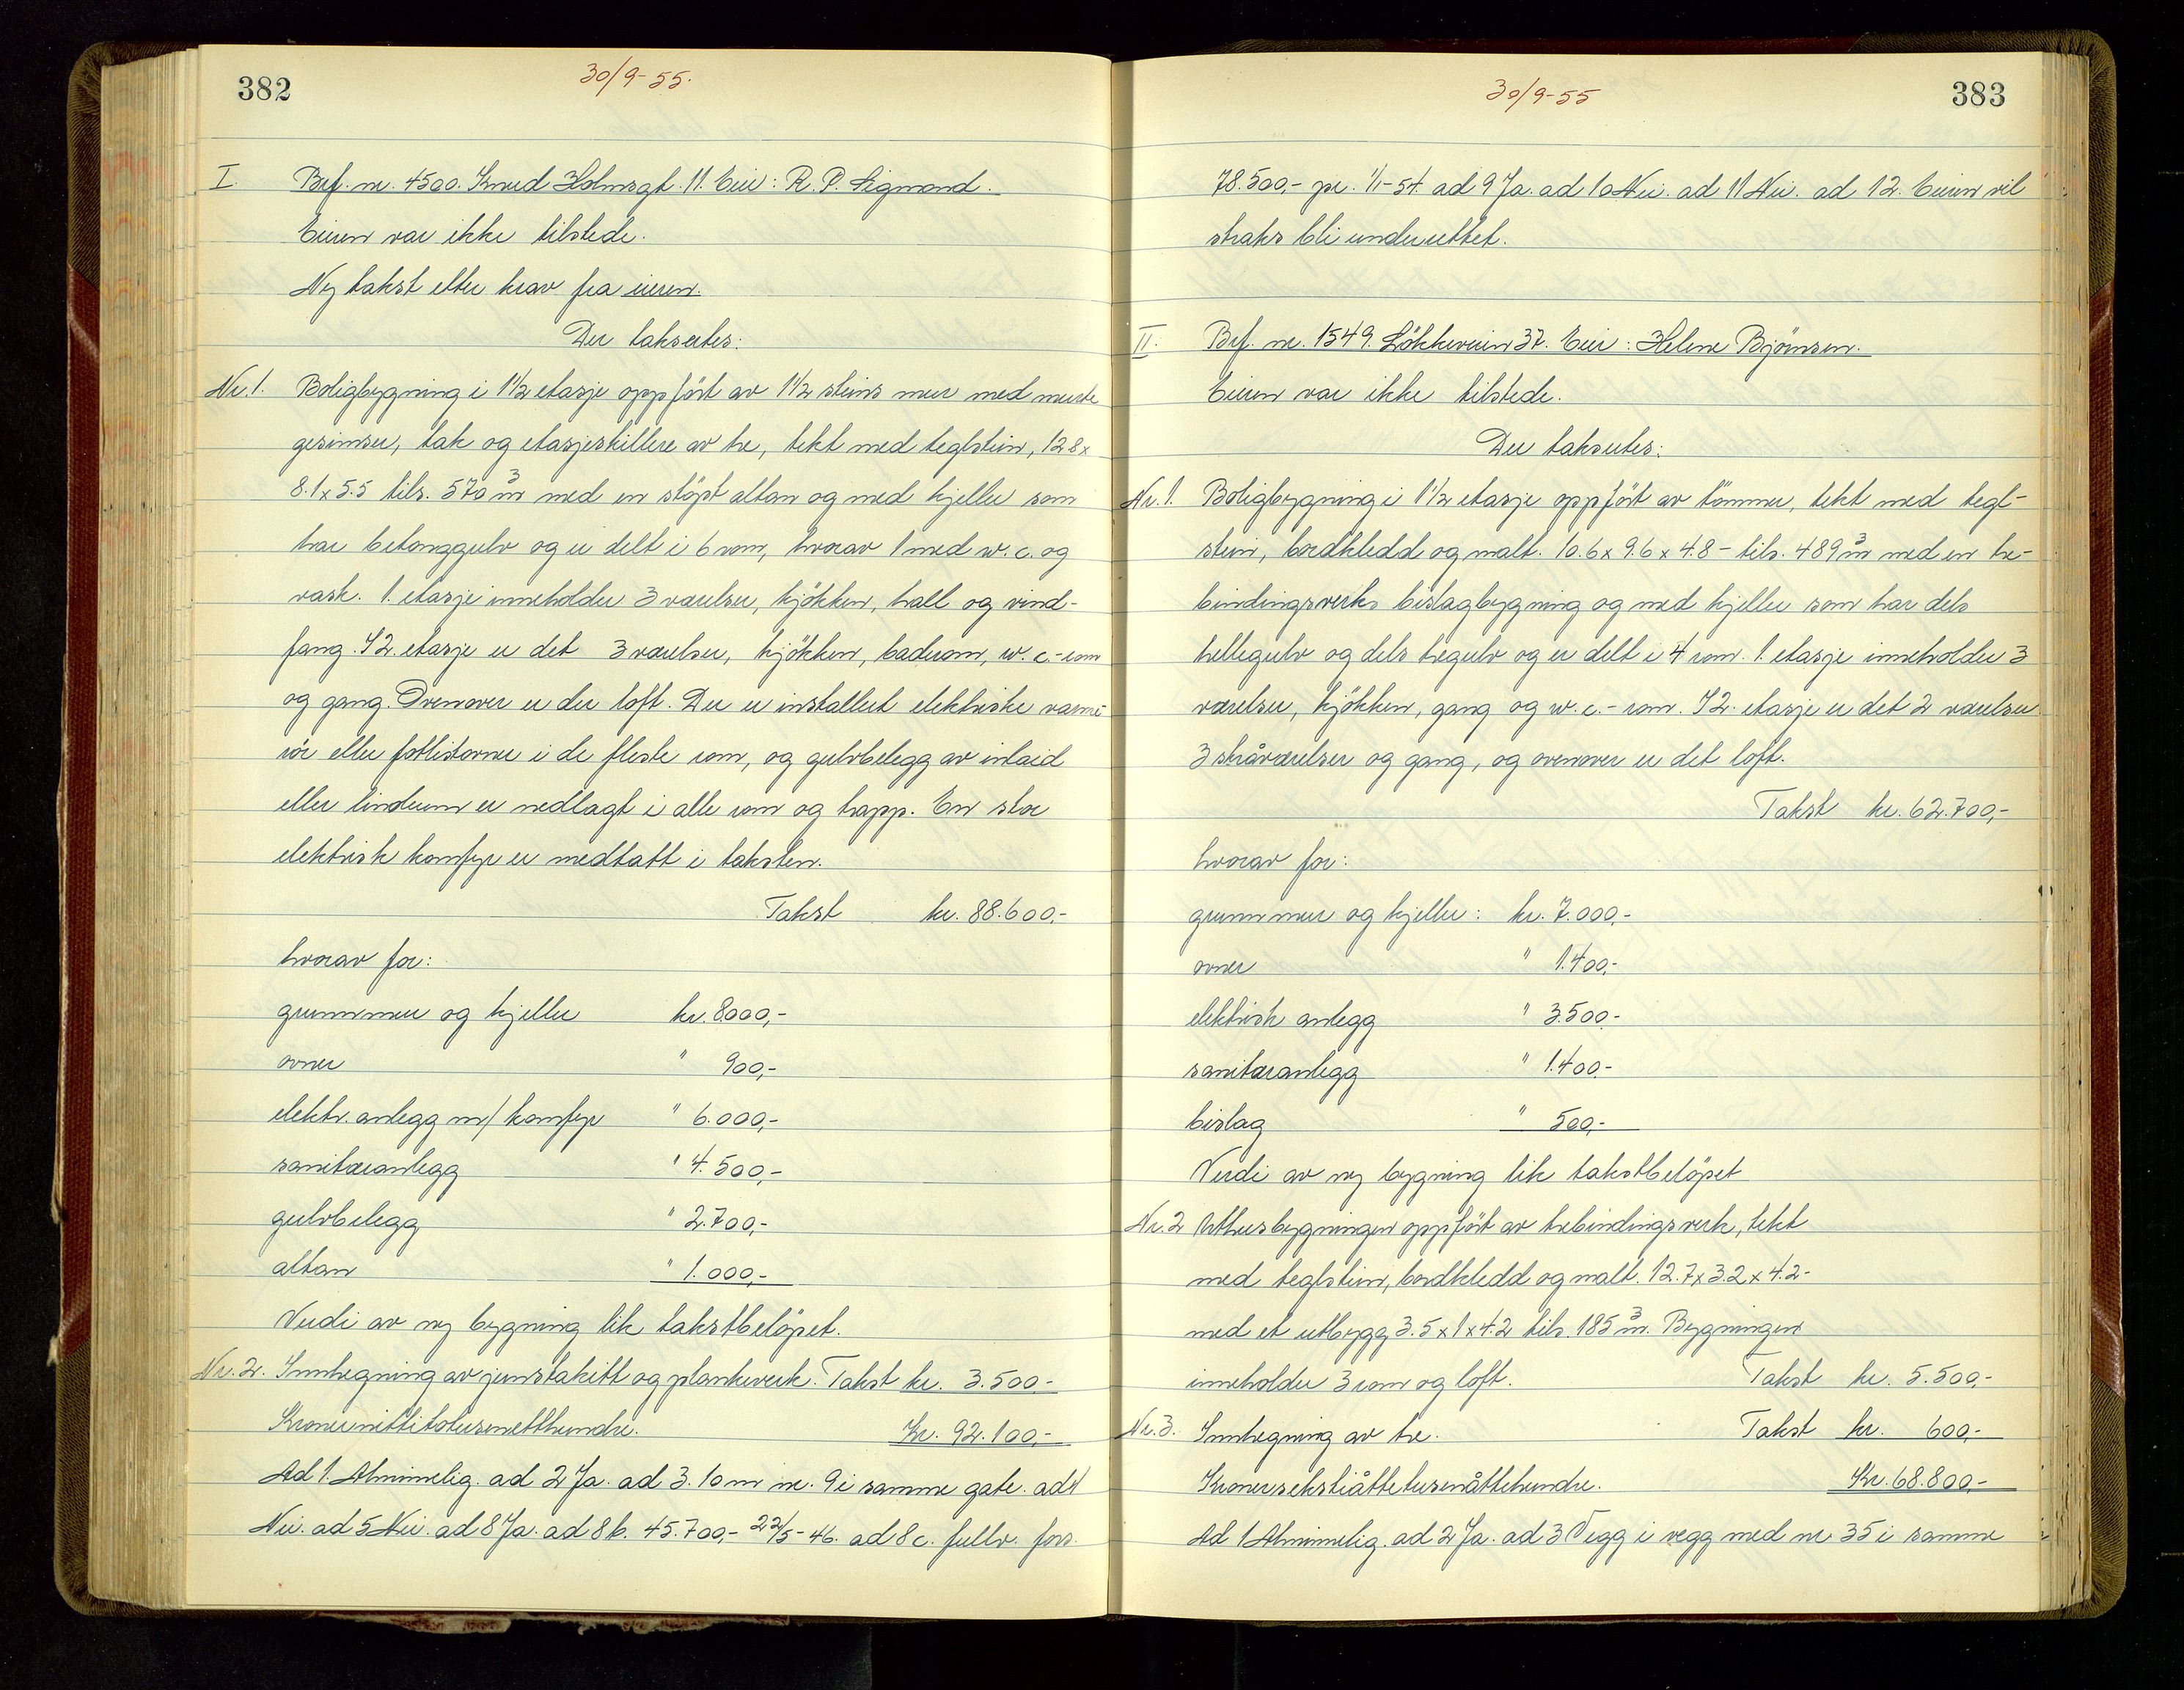 382
30/9-55.
I. Brf. nr. 4500. Knud Holmsgt. 11. Eier: R. P. Sigmond.
Eieren var ikke tilstede.
Ny takst etter krav fra eieren.
Der takseres:
Nr. 1. Boligbygning i 1 1/2 etasje oppført av 1 1/2 steins mur med murte
gesimser, tak og etasjeskillere av tre, tekt med teglstein, 12.8 x
8.1 x 5.5 tils. 570 m3 med en støpt altan og med kjeller som
har betonggulv og er delt i 6 rom, hvorav 1 med w.c. og
vask. 1. etasje inneholder 3 værelser, kjøkken, hall og vind-
fang. I 2. etasje er det 3 værelser, kjøkken, baderom, w.c.-rom
og gang. Ovenover er der loft. Der er installert elektriske varme-
rør eller fotlistovner i de fleste rom, og gulvbelegg av inlaid
eller linoleum er nedlagt i alle rom og trapp. En stor
elektrisk komfyr er medtatt i taksten.
Takst kr. 88.600,-
hvorav for:
grunnmur og kjeller kr. 8.000,-
ovner " 900,-
elektr. anlegg m/komfyr " 6.000,-
sanitæranlegg " 4.500,-
gulvbelegg " 2.700,-
altan " 1.000,-
Verdi av ny bygning lik takstbeløpet.
Nr. 2. Innhegning av jernstakitt og plankeverk. Takst kr. 3.500-
Kronernittitotusenetthundre. Kr. 92.100,-
Ad 1. Alminnelig. ad 2 Ja. ad 3. 10 m nr. 9 i samme gate. ad 4
Nei. ad 5 Nei. ad 8 Ja. ad 8 b. 45.700,- 22/5-46. ad 8 c. fullv. fors.
30/9-55
383
78.500,- pr. 1/1-54. ad 9 Ja. ad 10 Nei. ad 11 Nei. ad 12. Eieren vil
straks bli underrettet.
II. Brf. nr. 1549. Løkkeveien 37. Eier: Helene Bjørnsen.
Eieren var ikke tilstede.
Der takseres:
Nr. 1. Boligbygning i 1 1/2 etasje oppført av tømmer, tekt med tegl-
stein, bordkledd og malt. 10.6 x 9.6 x 4.8 - tils. 489 m3 med en tre-
bindingsverks bislagbygning og med kjeller som har dels
hellegulv og dels tregulv og er delt i 4 rom. 1. etasje inneholder 3
værelser, kjøkken, gang og w.c.-rom. I 2. etasje er det 2 værelser
3 skråværelser og gang, og ovenover er det loft.
Takst kr. 62.700,-
hvorav for:
grunnmur og kjeller: kr. 7.000,-
ovner " 1.400,-
elektrisk anlegg " 3.500,-
sanitæranlegg " 1.400,-
bislag " 500,-
Verdi av ny bygning lik takstbeløpet
Nr. 2 Uthusbygningen oppført av trebindingsverk, tekt
med teglstein, bordkledd og malt. 12.7 x 3.2 x 4.2 -
med et utbygg 3.5 x 1 x 4.2 tils. 185 m3. Bygningen
inneholder 3 rom og loft. Takst kr. 5.500,-
Nr. 3. Innhegning av tre. Takst kr. 600,-
Kronersekstiåttetusenåttehundre. Kr. 68.800,-
Ad 1 Alminnelig. ad 2 Ja. ad 3 Vegg i vegg med nr 35 i samme